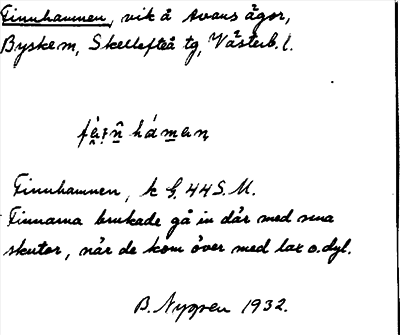 Finnhamnen, vik å Avans ägor,
Byske sn, Skellefteå tg, Västerb. l.
Finnhamnen, k G. 44 S.M.
Finnarna brukade gå in där med sina
skutor, när de kom över med lax o.dyl.
B. Nygren 1932.